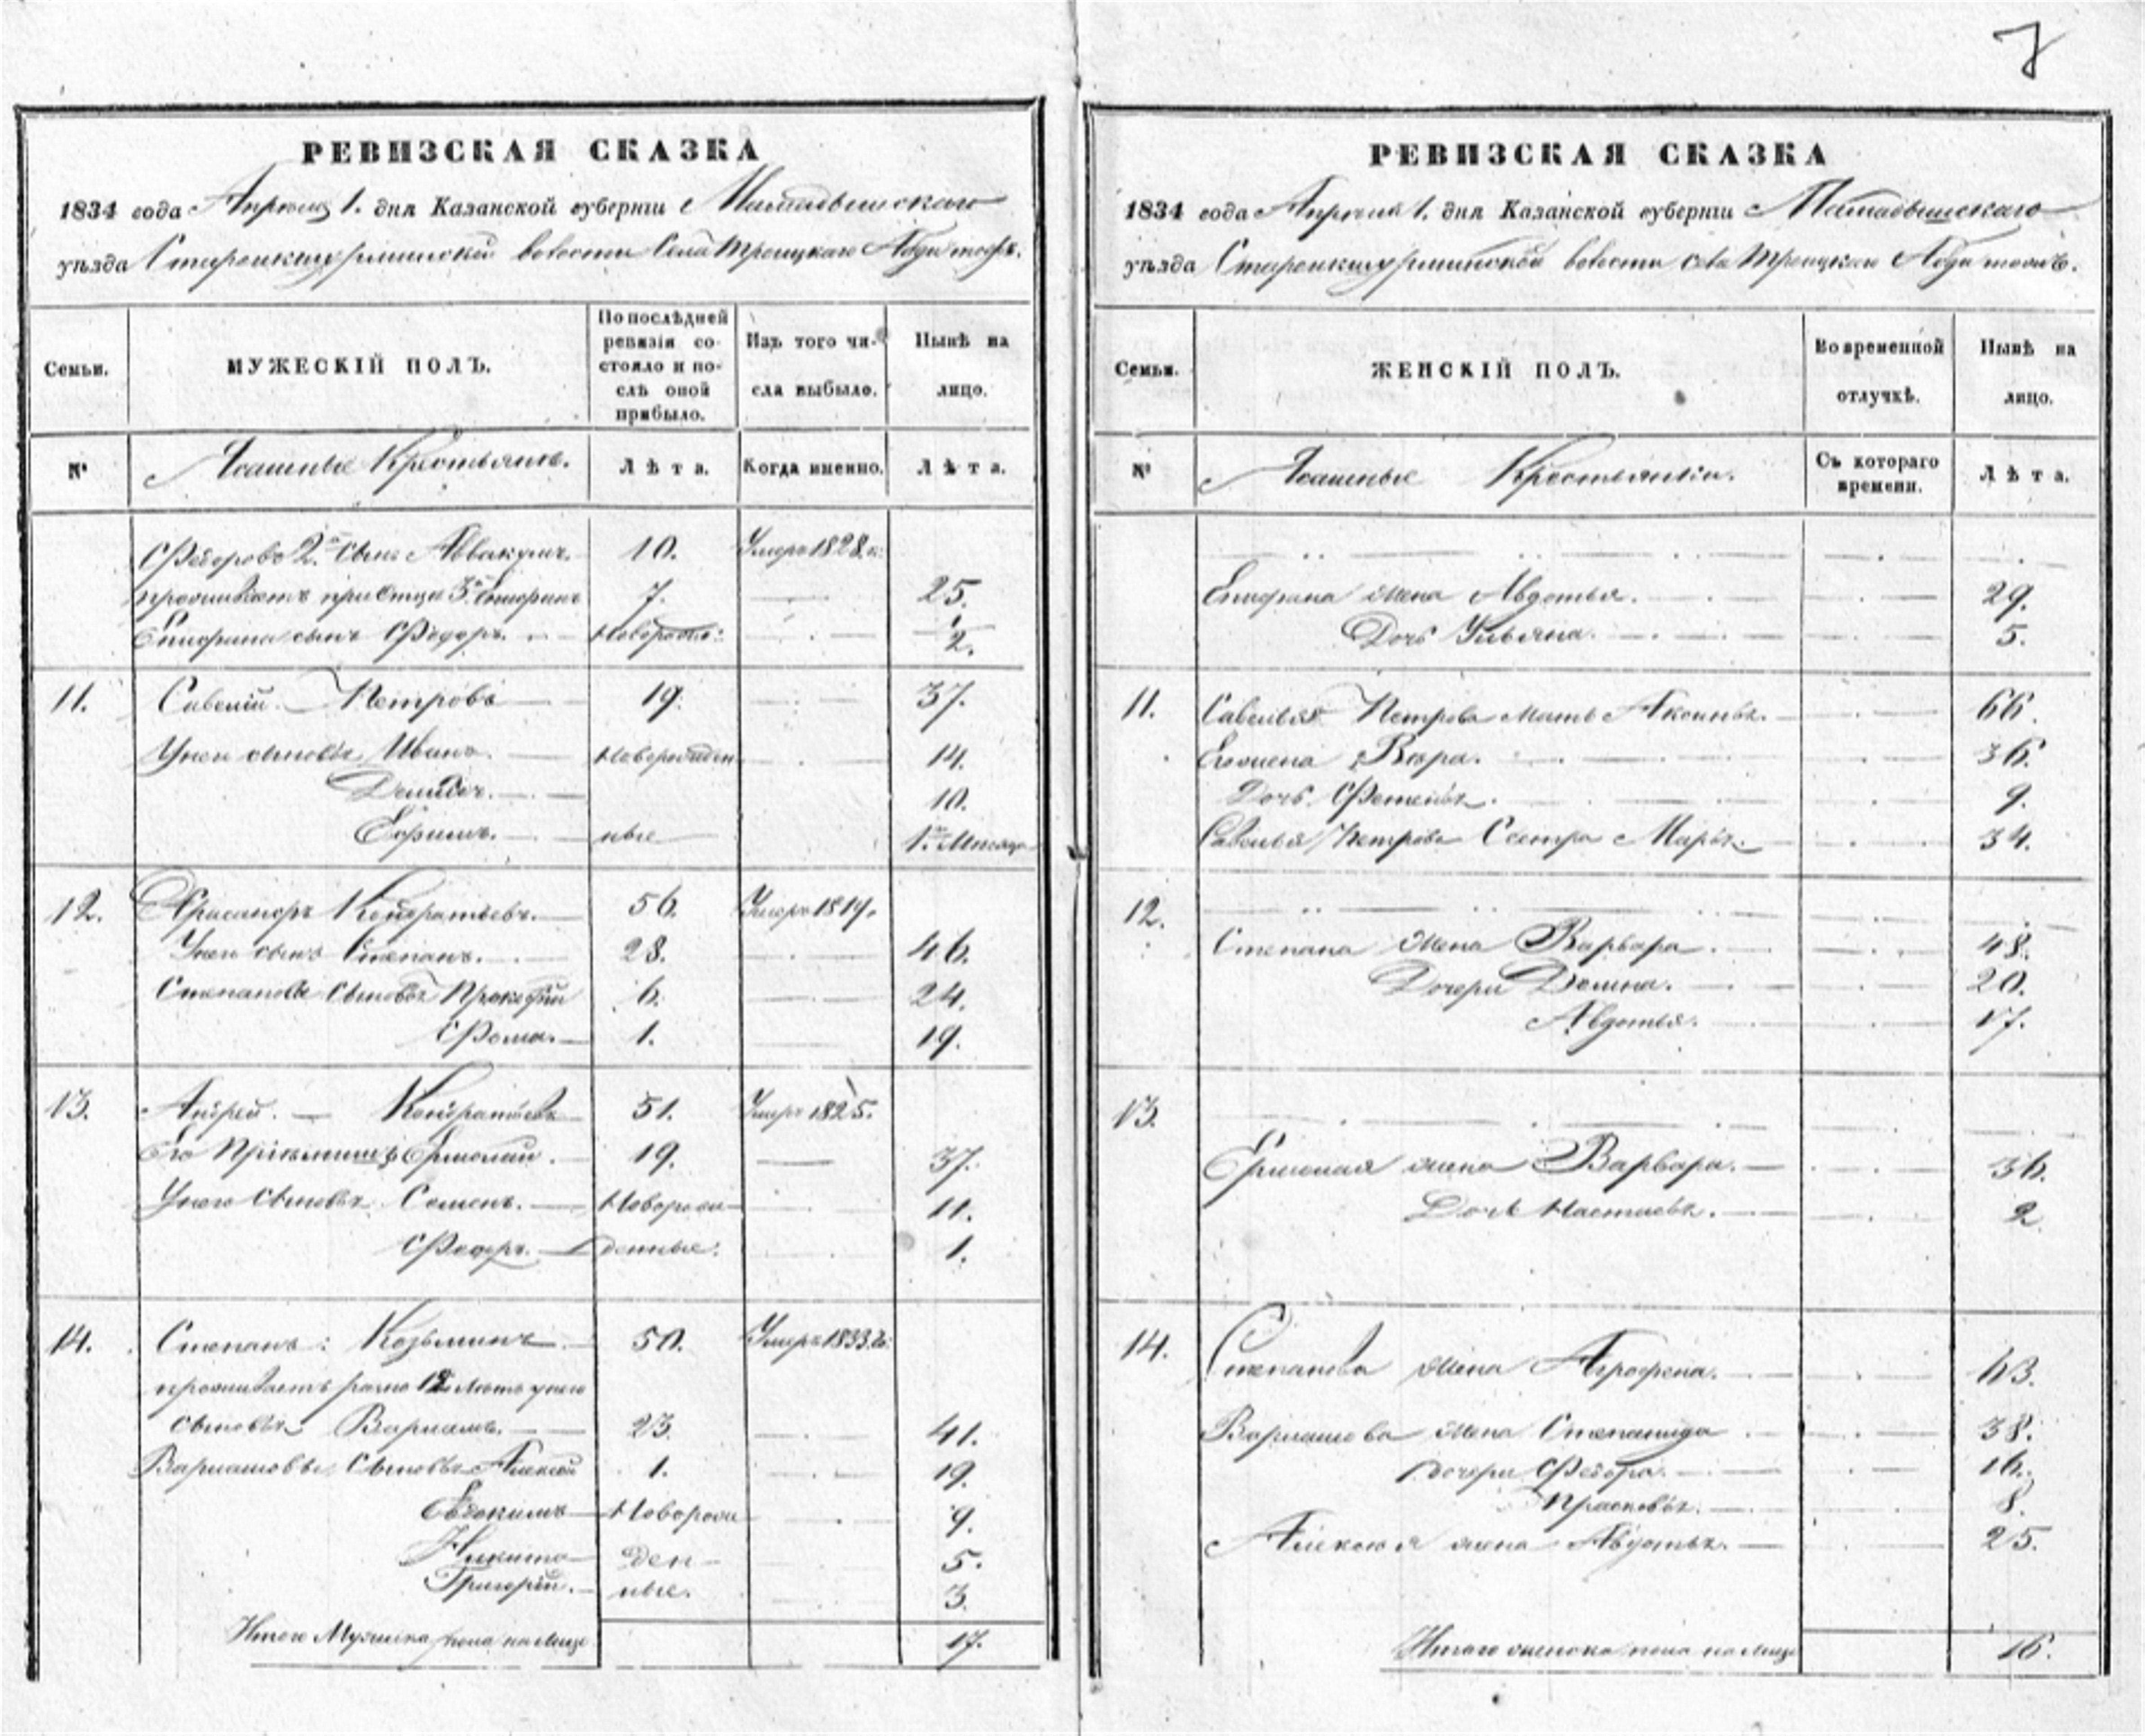 7
РЕВИЗСКАЯ СКАЗКА
1834 года Апреля 1. дня Казанской губернiи Мамадышскаго
уѣзда волости Села Троицкаго
Семьи.
МУЖЕСКIЙ ПОЛЪ.
По послѣдней ревизiи состояло и послѣ оной прибыло.
Изъ того числа выбыло.
Нынѣ на лицо.
№
Ясашные Крестьяне.
Лѣта.
Когда именно.
Лѣта.
Федорова 2й сынъ Аввакумъ. 10. Умеръ 1828.
при Отце 3й 7. 25.
сынъ Федоръ. Новорож: 1/2.
11. Савелiй Петровъ 19. 37.
У нею сыновья Иванъ. Новорожден 14.
Демидъ. 10.
Ефимъ. ные 1. Месяца
12. Кондратьевъ. 56. Умеръ 1819.
У нею сынъ Степанъ. 28. 46.
Степановы Сыновья Прокофiй 6. 24.
Фома. 1. 19.
13. Андрей. Кондратьевъ 51. Умеръ 1825.
Его Ермолай. 19. 37.
У него Сыновья Семенъ. Новорож 11.
Федоръ. денные. 1.
14. Степанъ: Козьминъ 50. Умеръ 1833.
у него
сыновья 23. 41.
Сыновья Алексей 1. 19.
Евдокимъ Новорож 9.
Никита ден- 5.
Григорiй. ные. 3.
Итого Мужеска пола на Лицо 17.
РЕВИЗСКАЯ СКАЗКА
1834 года Апреля 1. дня Казанской губернiи Мамадышскаго
уѣзда волости села Троицкаго
Семьи.
ЖЕНСКIЙ ПОЛЪ.
Во временной отлучкѣ.
Нынѣ на лицо.
№
Ясашные Крестьянки.
Съ котораго времени.
Лѣта.
жена Авдотья. 29.
Дочь Ульяна. 5.
11. Савелья Петрова мать Аксинья. 66.
Его жена Вера. 36.
Дочь 9.
Савелья Петрова Сестра Марья. 34.
12.
Степана жена Варвара. 48.
Дочери 20.
Авдотья. 17.
13.
Ермолая жена Варвара. 36.
Дочь Настасья. 2.
14. Степанова жена Аграфена. 63.
жена Степанида 38.
дочери Федора. 16.
Прасковья. 8.
Алексея жена Авдотья. 25.
Итого женска пола на Лицо 16.